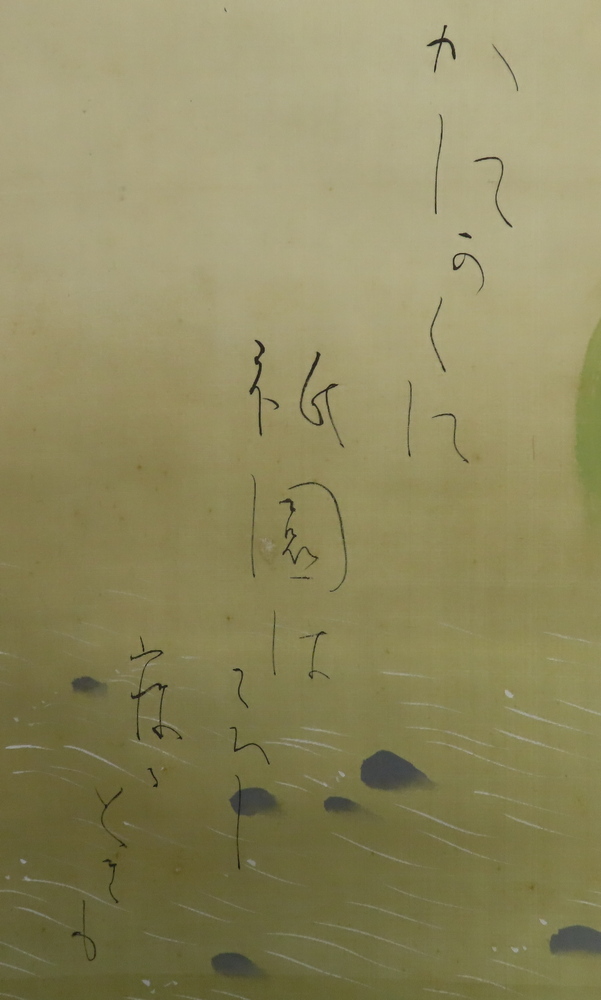 かにかくに
祇園は
こひし
寝る
ときも